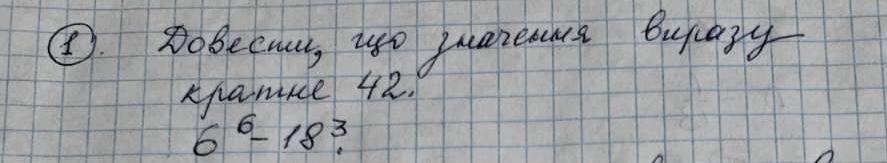 1. Довести, що значення виразу
кратне 42.
6⁶ - 18³.